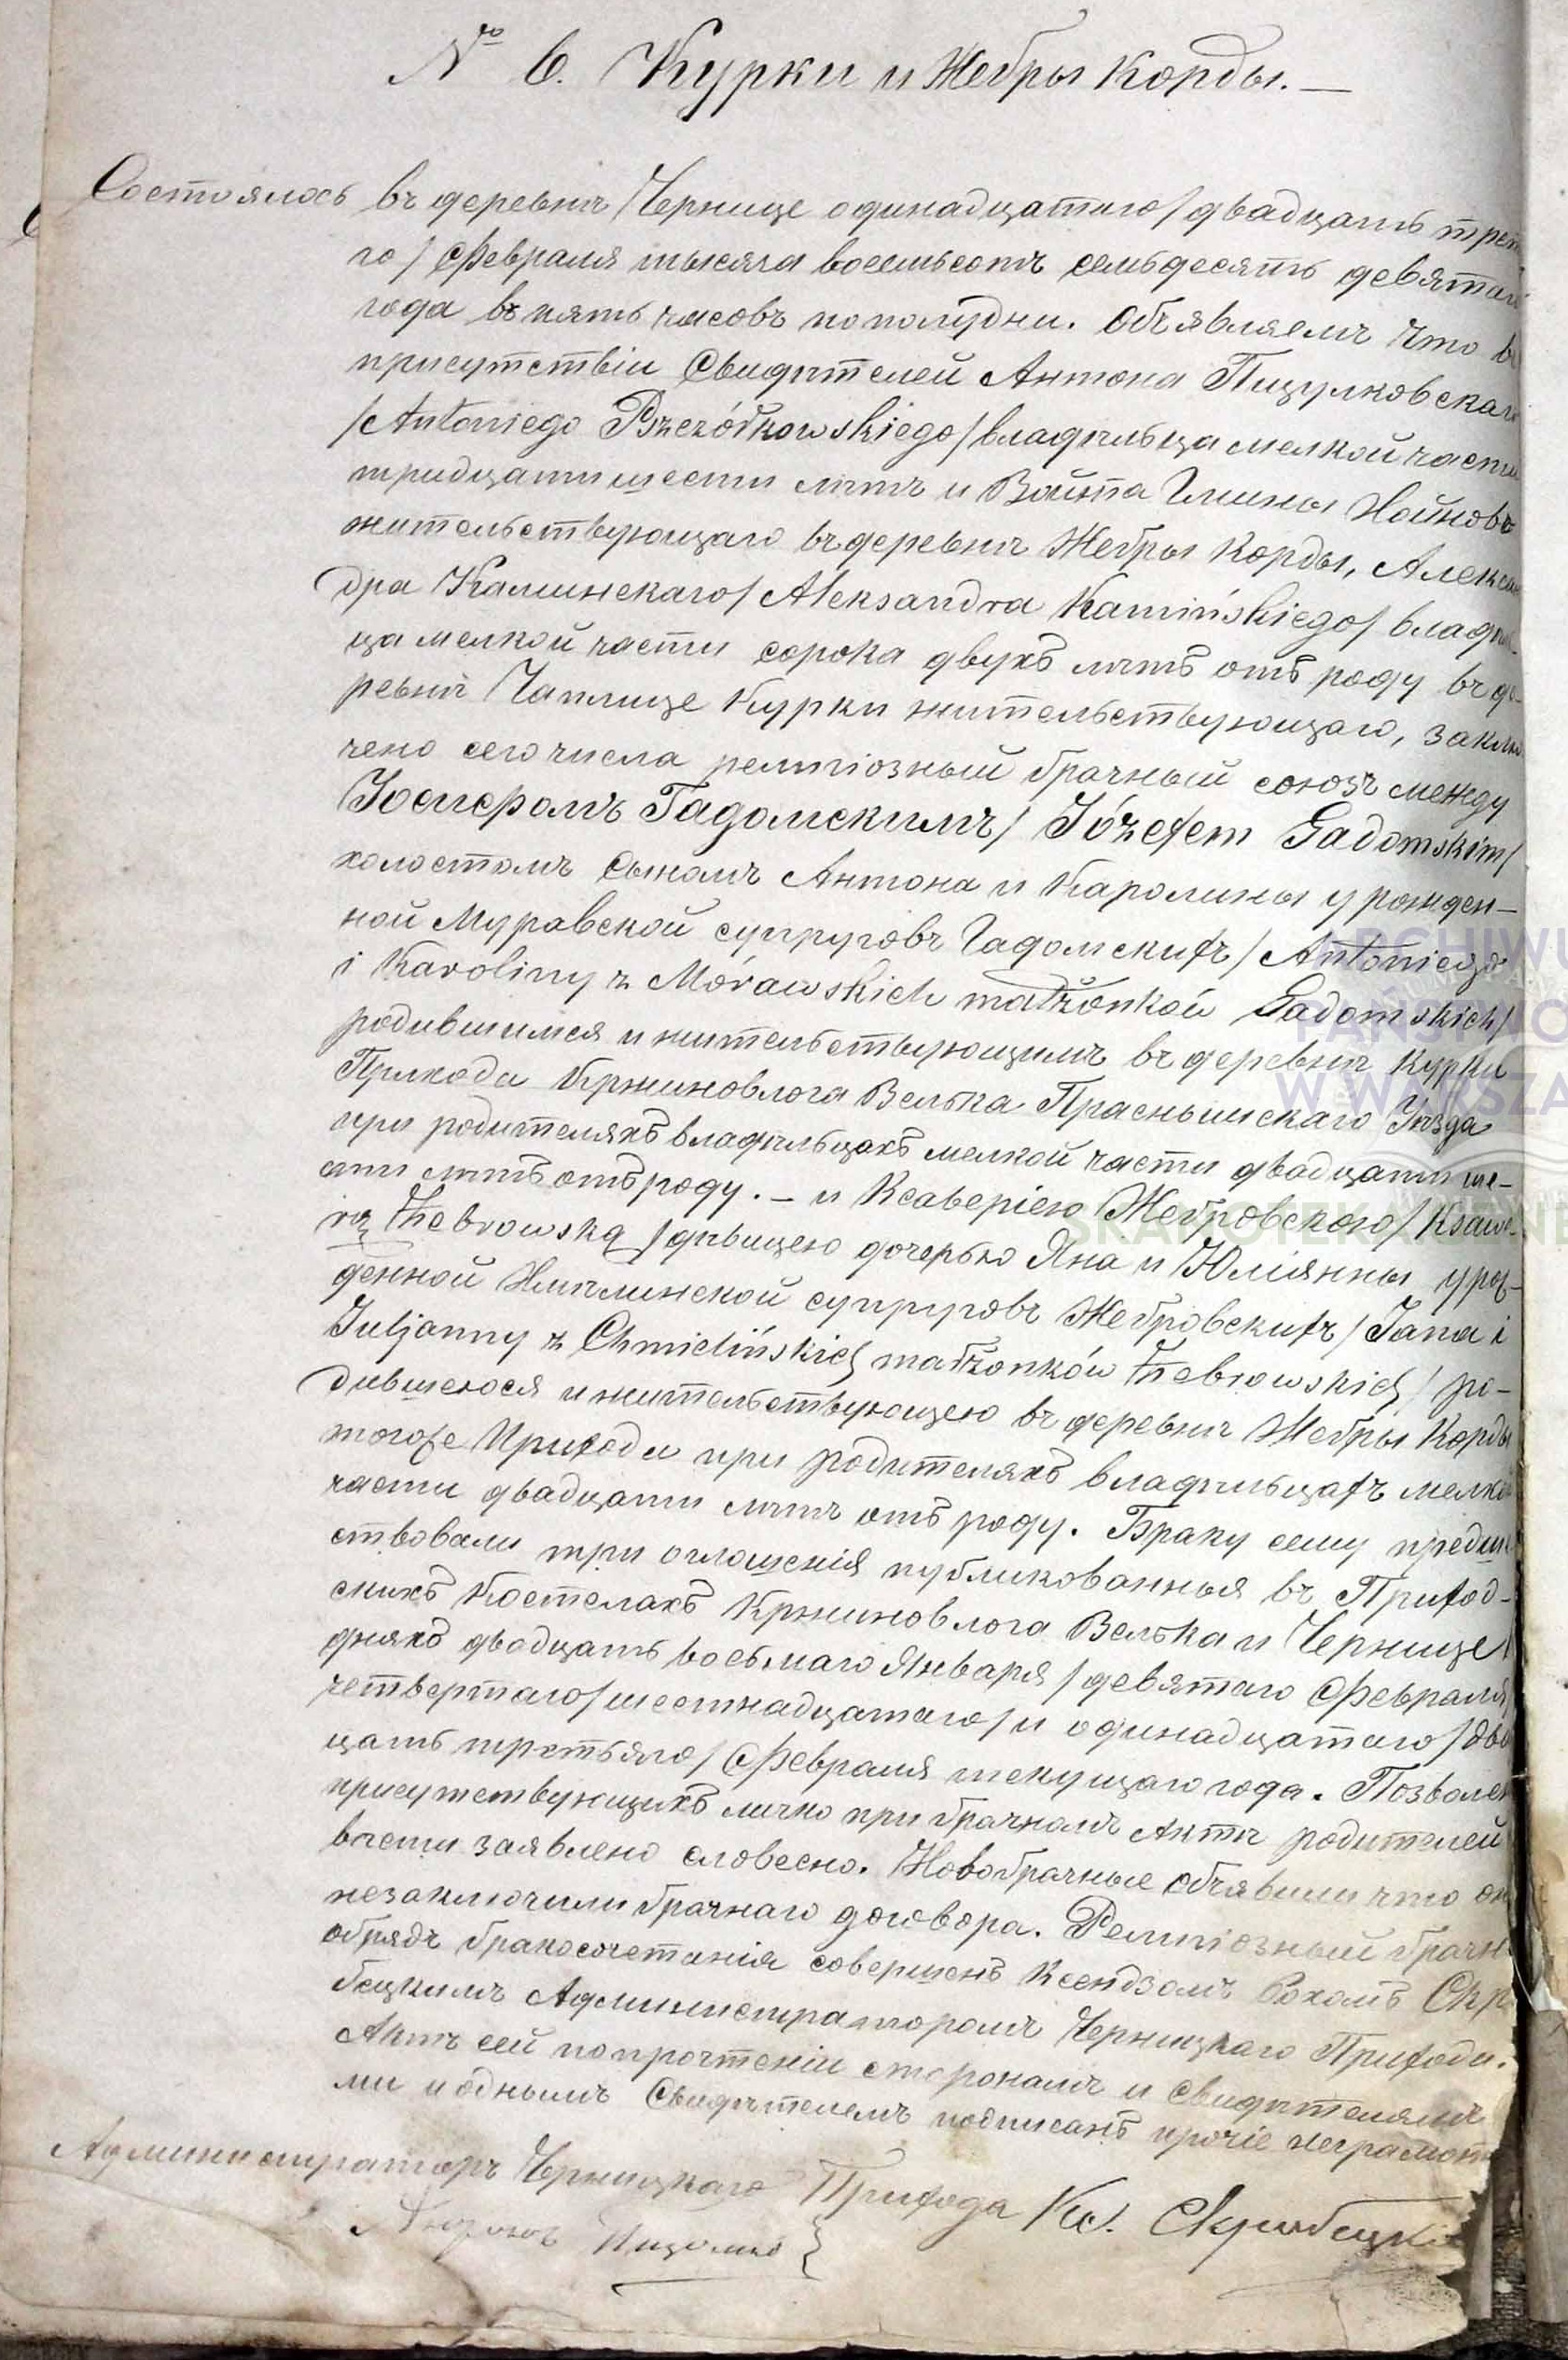 № 6. Курки и Жебры Корды. —
Состоялось въ деревнѣ Чернице одинадцатаго / двадцать трет
го / Февраля тысяча восемьсотъ семьдесять девятаго
года въ пять часовъ пополудни. Объявляемъ что въ
присутствіи Свидѣтелей Антона
/ Antoniego / владѣльца мелкой части
тридцати шести лѣтъ и Войта Гмины Хойново
жительствующаго въ деревнѣ Жебры Корды, Алексан
дра Каминскаго / Aleksandra Kamińskiego / владѣль
ца мелкой части сорока двухъ лѣтъ отъ роду въ де
ревнѣ Чаплице Курки жительствующаго, заклю
чено сего числа религіозный брачный союзъ между
Іосифомъ Гадомскимъ / Józefem Gadomskim /
холостомъ сыномъ Антона и Каролины урожден-
ной Муравской супруговъ Гадомскихъ / Antoniego
i Karoliny z Mórawskich małżonków Gadomskich /
родившимся и жительствующимъ въ деревнѣ Курки
Прихода Кржиновлога Велька Праснышскаго Уѣзда
при родителяхъ владѣльцахъ мелкой части двадцати ше-
сти лѣтъ отъ роду. — и Ксаверіею Жебровскою / Ksawe-
rą Żebrowską / дѣвицею дочерью Яна и Юліянны уро-
денной Хмѣлинской супруговъ Жебровскихъ / Jana i
Juljanny z Chmielińskich małżonków Żebrowskich / ро-
дившеюся и жительствующею въ деревнѣ Жебры Корды
тогоже Прихода при родителяхъ владѣльцахъ мелкой
части двадцати лѣтъ отъ роду. Браку сему предше
ствовали три оглошенія публикованныя въ Приход-
скихъ Костелахъ Кржиновлога Велька и Чернице
дняхъ двадцать восьмаго Января / девятаго Февраля
четвертаго / шестнадцатаго / и одинадцатаго / два
цать третьяго / Февраля текущаго года. Позволен
присутствующихъ лично при брачномъ Актѣ родителей
заявлено словесно. Новобрачные объявили что он
незаключили брачнаго договора. Религіозный брачн
обрядъ бракосочетанія совершенъ Ксендзомъ Рохомъ Скр
бецкимъ Администраторомъ Черницкаго Прихода.
Актъ сей по прочтеніи сторонамъ и свидѣтелямъ
ми и однымъ Свидѣтелемъ подписанъ прочіе неграмотн
Администраторъ Черницкаго Прихода Кс. Скрибецкі